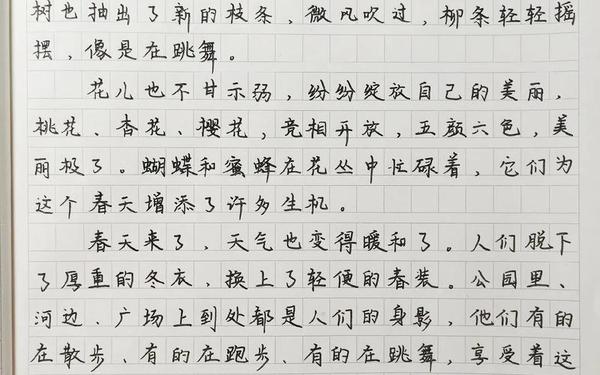 树也抽出了新的枝条，微风吹过，柳条轻轻摇
摆，像是在跳舞。
花儿也不甘示弱，纷纷绽放自己的美丽，
桃花、杏花、樱花，竞相开放，五颜六色，美
丽极了。蝴蝶和蜜蜂在花丛中忙碌着，它们为
这个春天增添了许多生机。
春天来了，天气也变得暖和了。人们脱下
了厚重的冬衣，换上了轻便的春装。公园里、
河边、广场上到处都是人们的身影，他们有的
在散步、有的在跑步、有的在跳舞，享受着这